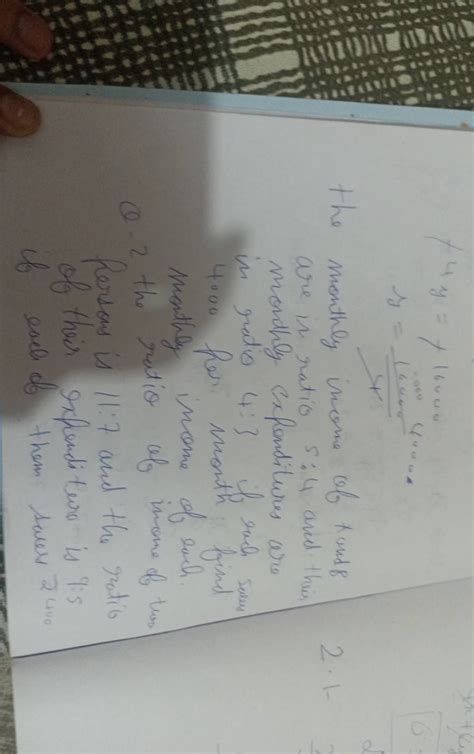 +4y = +16000
y = 16000 4000
4
the monthly income of A and B
are in ratio 5:4 and their
monthly expenditures are
in ratio 4:3 if each saves
4000 per month find
monthly income of each.
Q-2 the ratio of income of two
persons is 11:7 and the ratio
of their expenditure is 9:5
if each of them saves ₹400
2.1